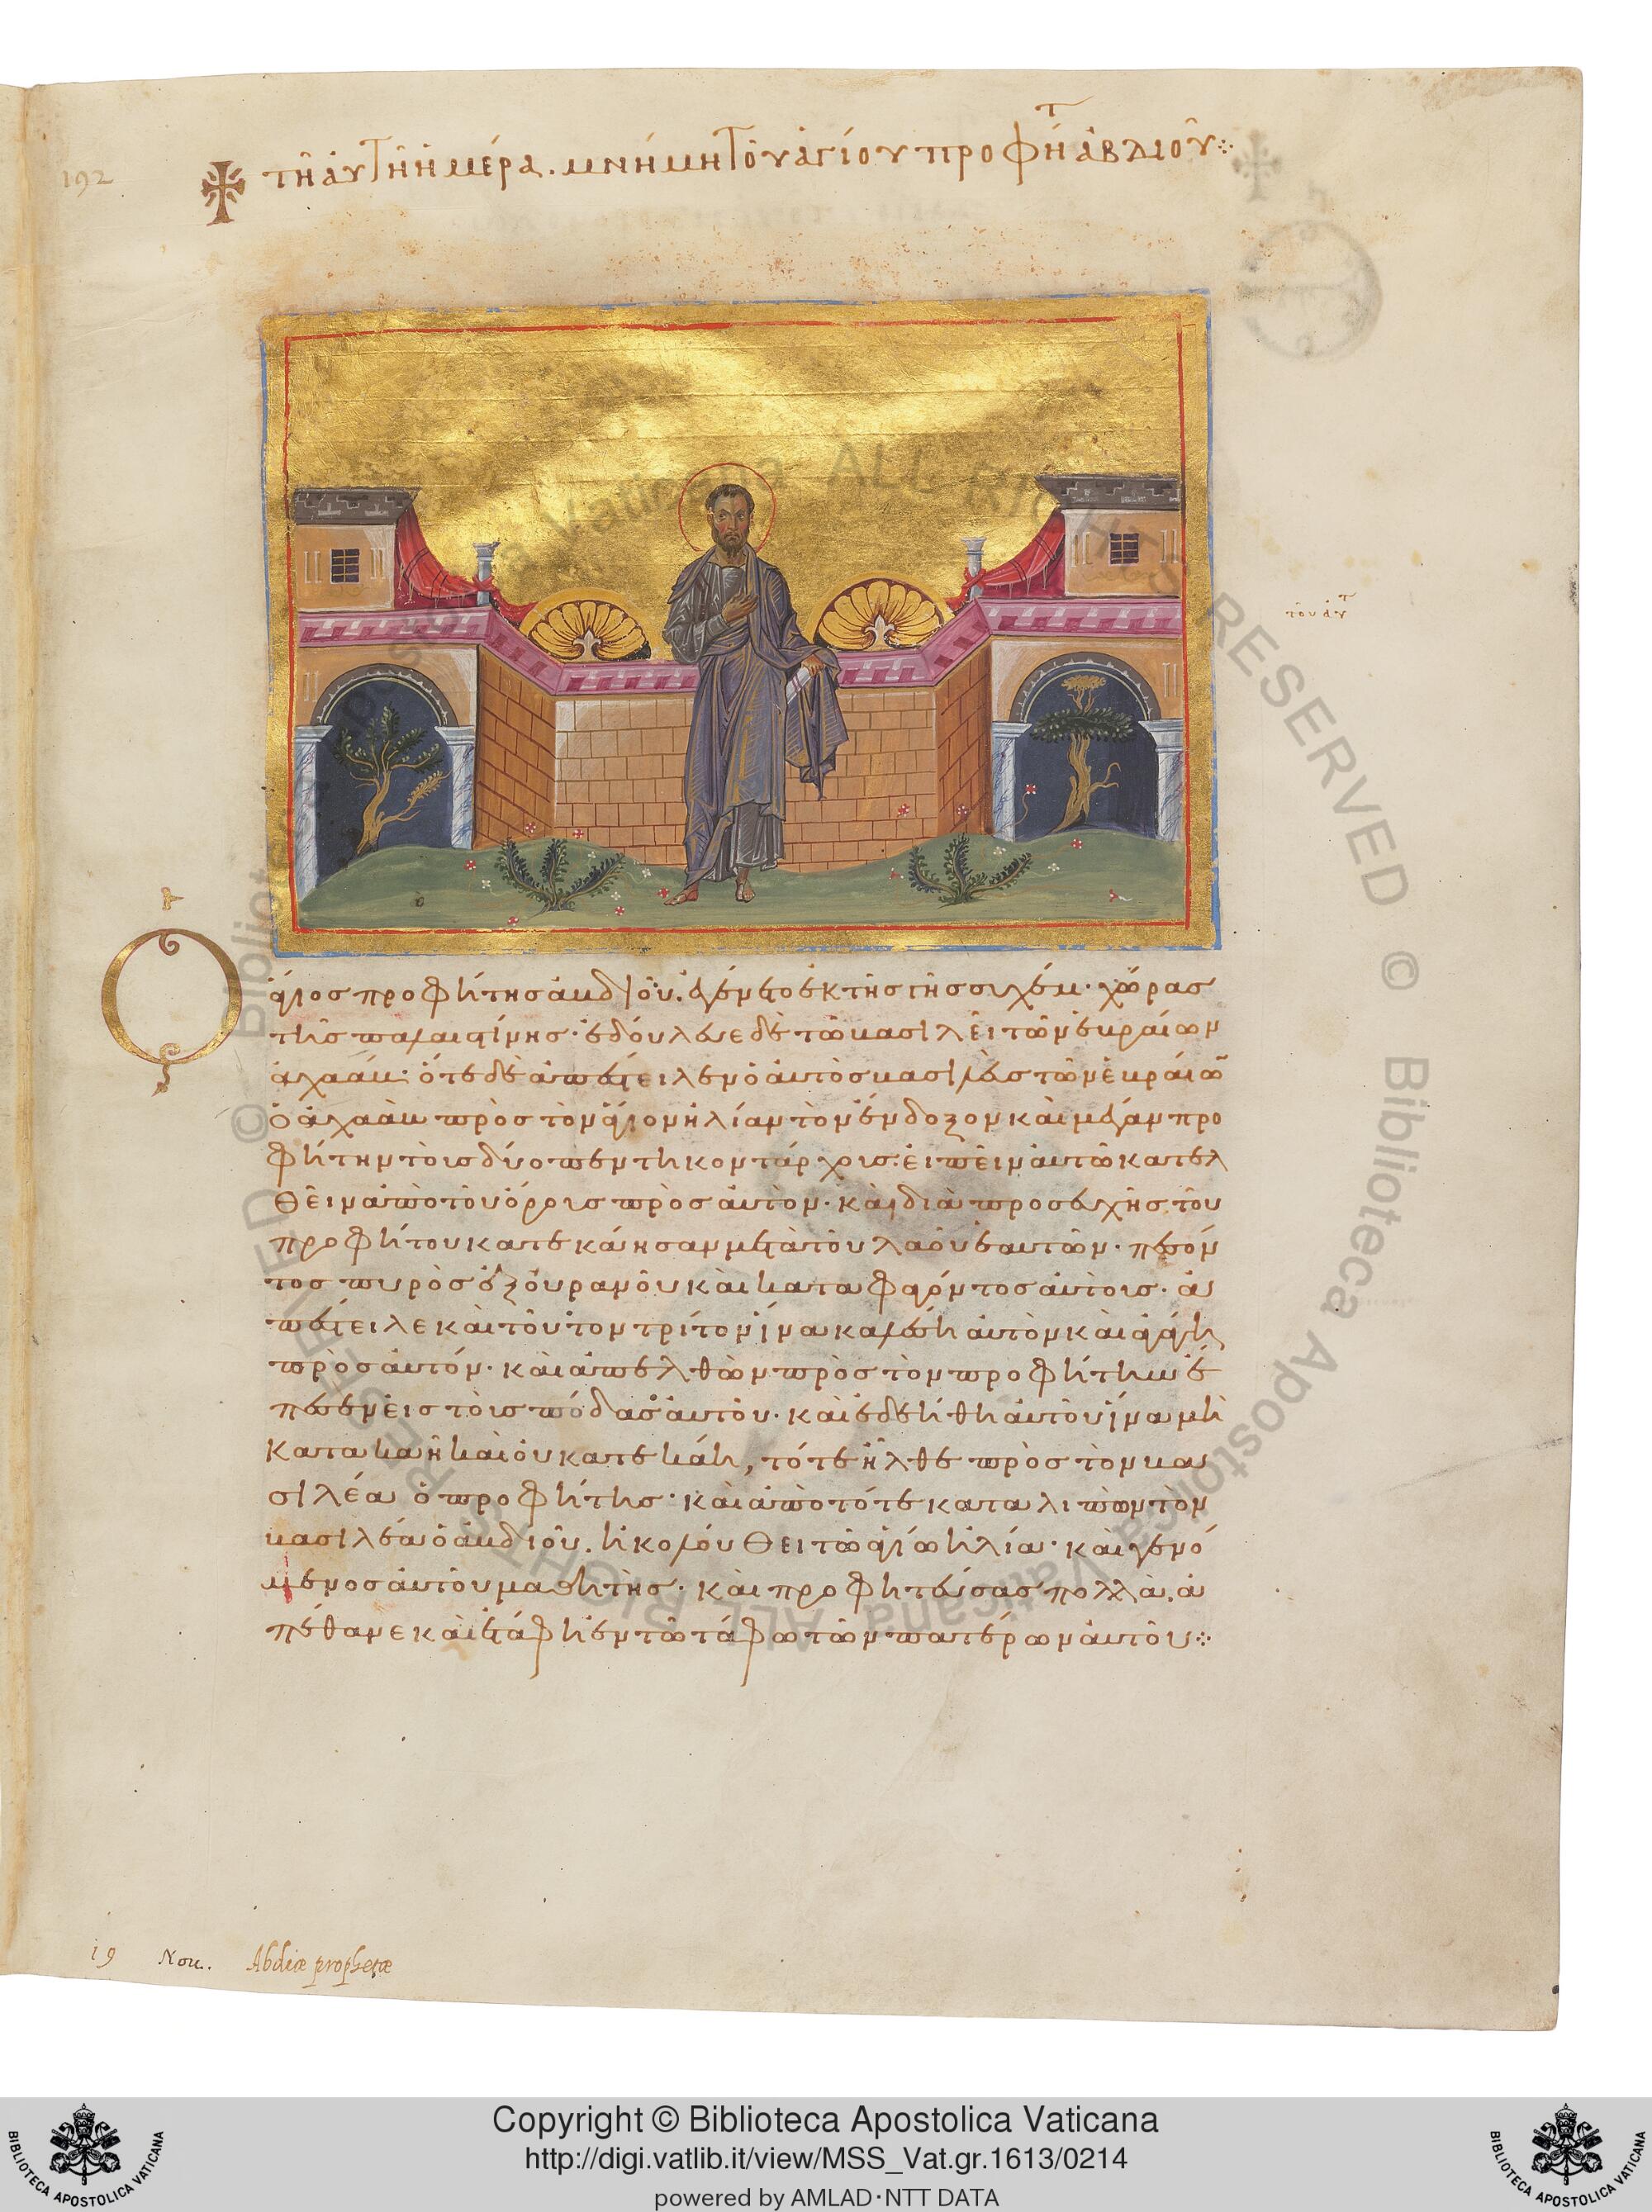 192
τῆ αὐτῆ ἡμέρα. μνήμη τοῦ ἁγίου προφήτ ἀβδιοῦ ⁘
τοῦ αὐτ
Ὁ ἅγιος προφήτης ἀβδιοῦ. ἐγένετο ἐκ τῆς γῆς συχέμ· χώρας
τῆς παλαιστίνης· ἐδούλευε δὲ τῶ βασιλεῖ τῶν ἑβραίων
ἀχαάβ· ὅτε δὲ ἀπέστειλεν ὁ αὐτὸς βασιλεὺς τῶν ἑβραίων
ὁ ἀχαὰβ πρὸς τὸν ἅγιον ἠλίαν τὸν ἔνδοξον καὶ μέγαν προ
φήτην τοὺς δύο πεντηκοντάρχους· εἰπεῖν αὐτῶ κατελ
θεῖν ἀπὸ τοῦ ὄρους πρὸς αὐτὸν· καὶ διὰ προσευχῆς τοῦ
προφήτου κατεκάησαν μετὰ τοῦ λαοῦ ἑαυτῶν· πεσόν
τος πυρὸς ἐξ οὐρανοῦ καὶ καταφαγόντος αὐτοὺς· ἀ
πέστειλε καὶ τοῦτον τρίτον ἵνα καλέση αὐτὸν καὶ ἀγάγη
πρὸς αὐτόν· καὶ ἀπελθὼν πρὸς τὸν προφήτην ἔ
πεσεν εἰς τοὺς πόδας αὐτοῦ· καὶ ἐδεήθη αὐτοῦ ἵνα μὴ
κατακαῆ καὶ οὐ κατεκάη, τότε ἦλθε πρὸς τὸν βα
σιλέα ὁ προφήτης· καὶ ἀπὸ τότε καταλιπὼν τὸν
βασιλέα ὁ ἀβδιοῦ. ἠκολούθει τῶ ἁγίω ἠλία· καὶ γενό
μενος αὐτοῦ μαθητὴς· καὶ προφητεύσας πολλὰ, ἀ
πέθανε καὶ ἐτάφη ἐν τῶ τάφω τῶν πατέρων αὐτοῦ ⁘
19 Nou. Abdiæ prophetæ
Copyright © Biblioteca Apostolica Vaticana
http://digi.vatlib.it/view/MSS_Vat.gr.1613/0214
powered by AMLAD·NTT DATA
BIBLIOTECA APOSTOLICA VATICANA
BIBLIOTECA APOSTOLICA VATICANA
© Biblioteca Apostolica Vaticana ALL RIGHTS RESERVED © Biblioteca Apostolica Vaticana ALL RIGHTS RESERVED